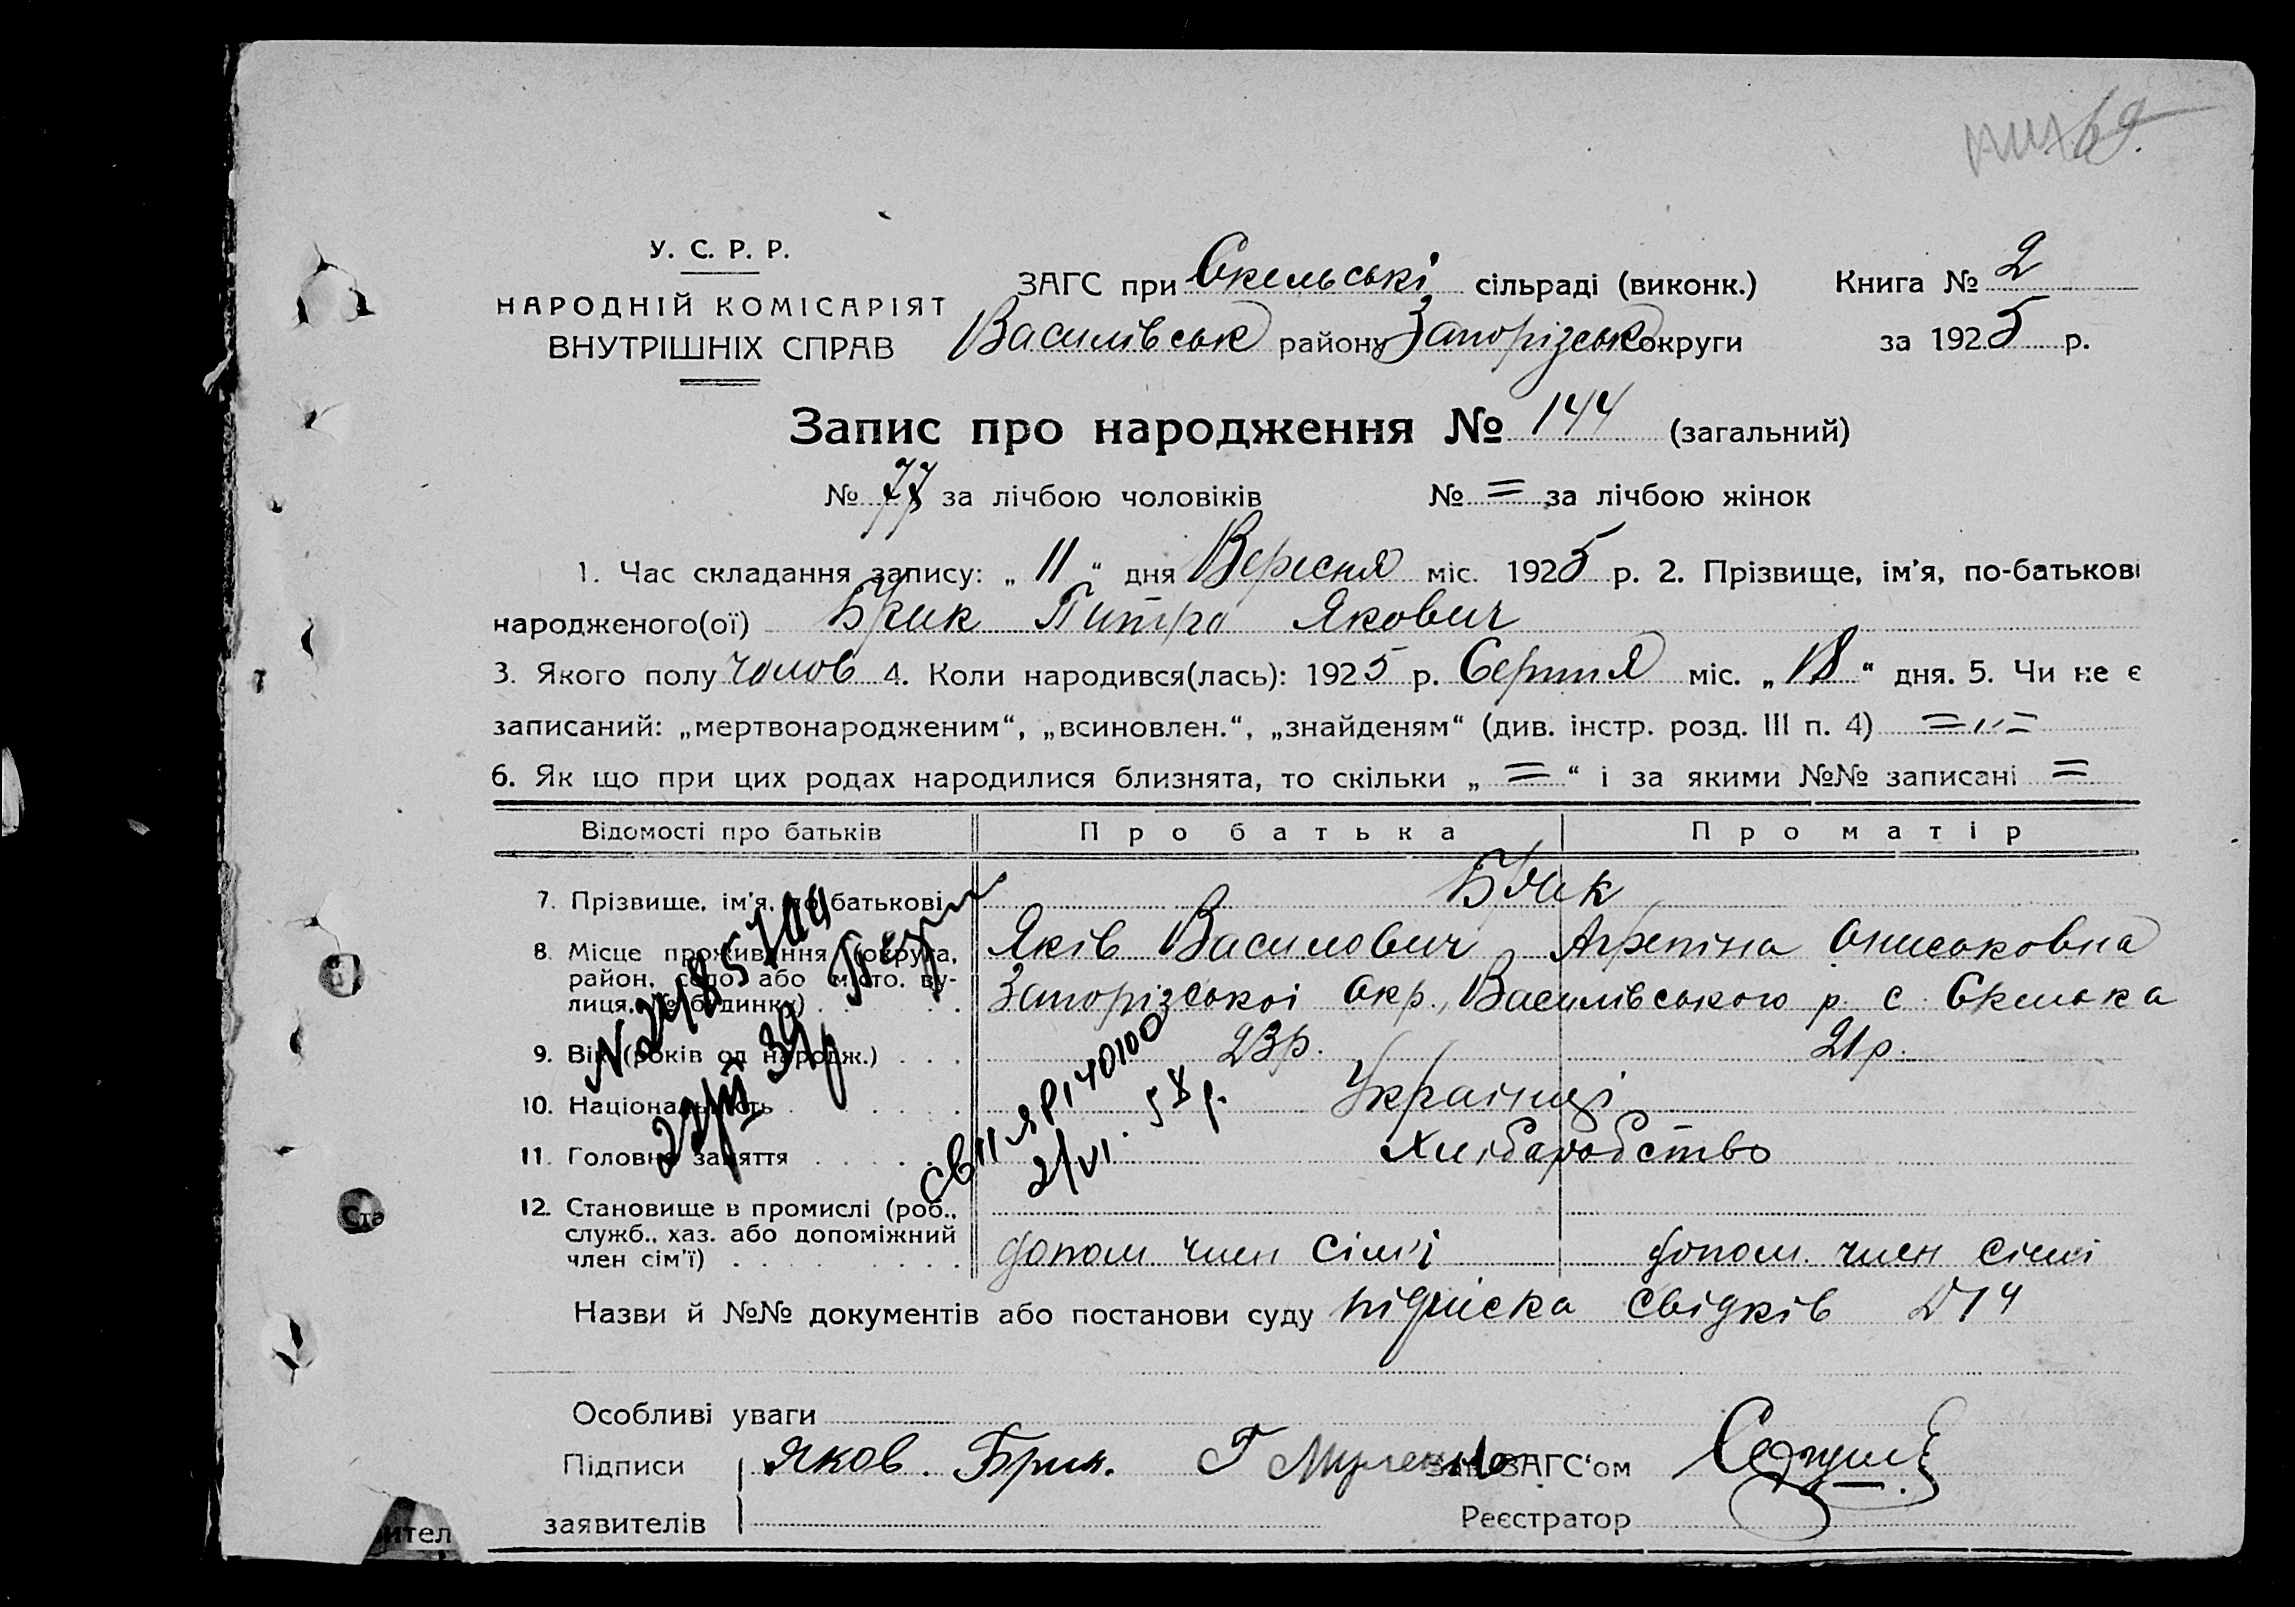 69.
У. С. Р. Р.
НАРОДНІЙ КОМІСАРІЯТ
ВНУТРІШНІХ СПРАВ
ЗАГС при Скельські сільраді (виконк.) Книга № 2
Василівськ району Запорізськ округи за 1925 р.
Запис про народження № 144 (загальний)
№ 77 за лічбою чоловіків № = за лічбою жінок
1. Час складання запису: „ 11 “ дня Вересня міс. 1925 р. 2. Прізвище, ім’я, по-батькові
народженого(ої) Брик Питро Якович
3. Якого полу чолов 4. Коли народився(лась): 1925 р. Серпня міс. „ 18 “ дня. 5. Чи не є
записаний: „мертвонародженим“, „всиновлен.“, „знайденям“ (див. інстр. розд. III п. 4) = „ =
6. Як що при цих родах народилися близнята, то скільки „ = “ і за якими №№ записані =
Відомості про батьків Про батька Про матір
7. Прізвище, ім’я, по батькові Брик
Яків Василович Агрепіна Онисоковна
8. Місце проживання (округа,
район, село або місто, ву-
лиця, № будинку) Запорізської окр., Василівського р. с. Скелька
9. Вік (років од народж.) 23р. 21р.
10. Національність Украінці
11. Головне заняття Хлібаробство
12. Становище в промислі (роб.,
служб., хаз. або допоміжний
член сім’ї) допом член сім’і допом. член сімі
Назви й №№ документів або постанови суду підписка свідків
Особливі уваги
Підписи Яков. Брик. Г Зав. ЗАГС‘ом
заявителів Реєстратор
2/VI. 58 р.
Ста
ител